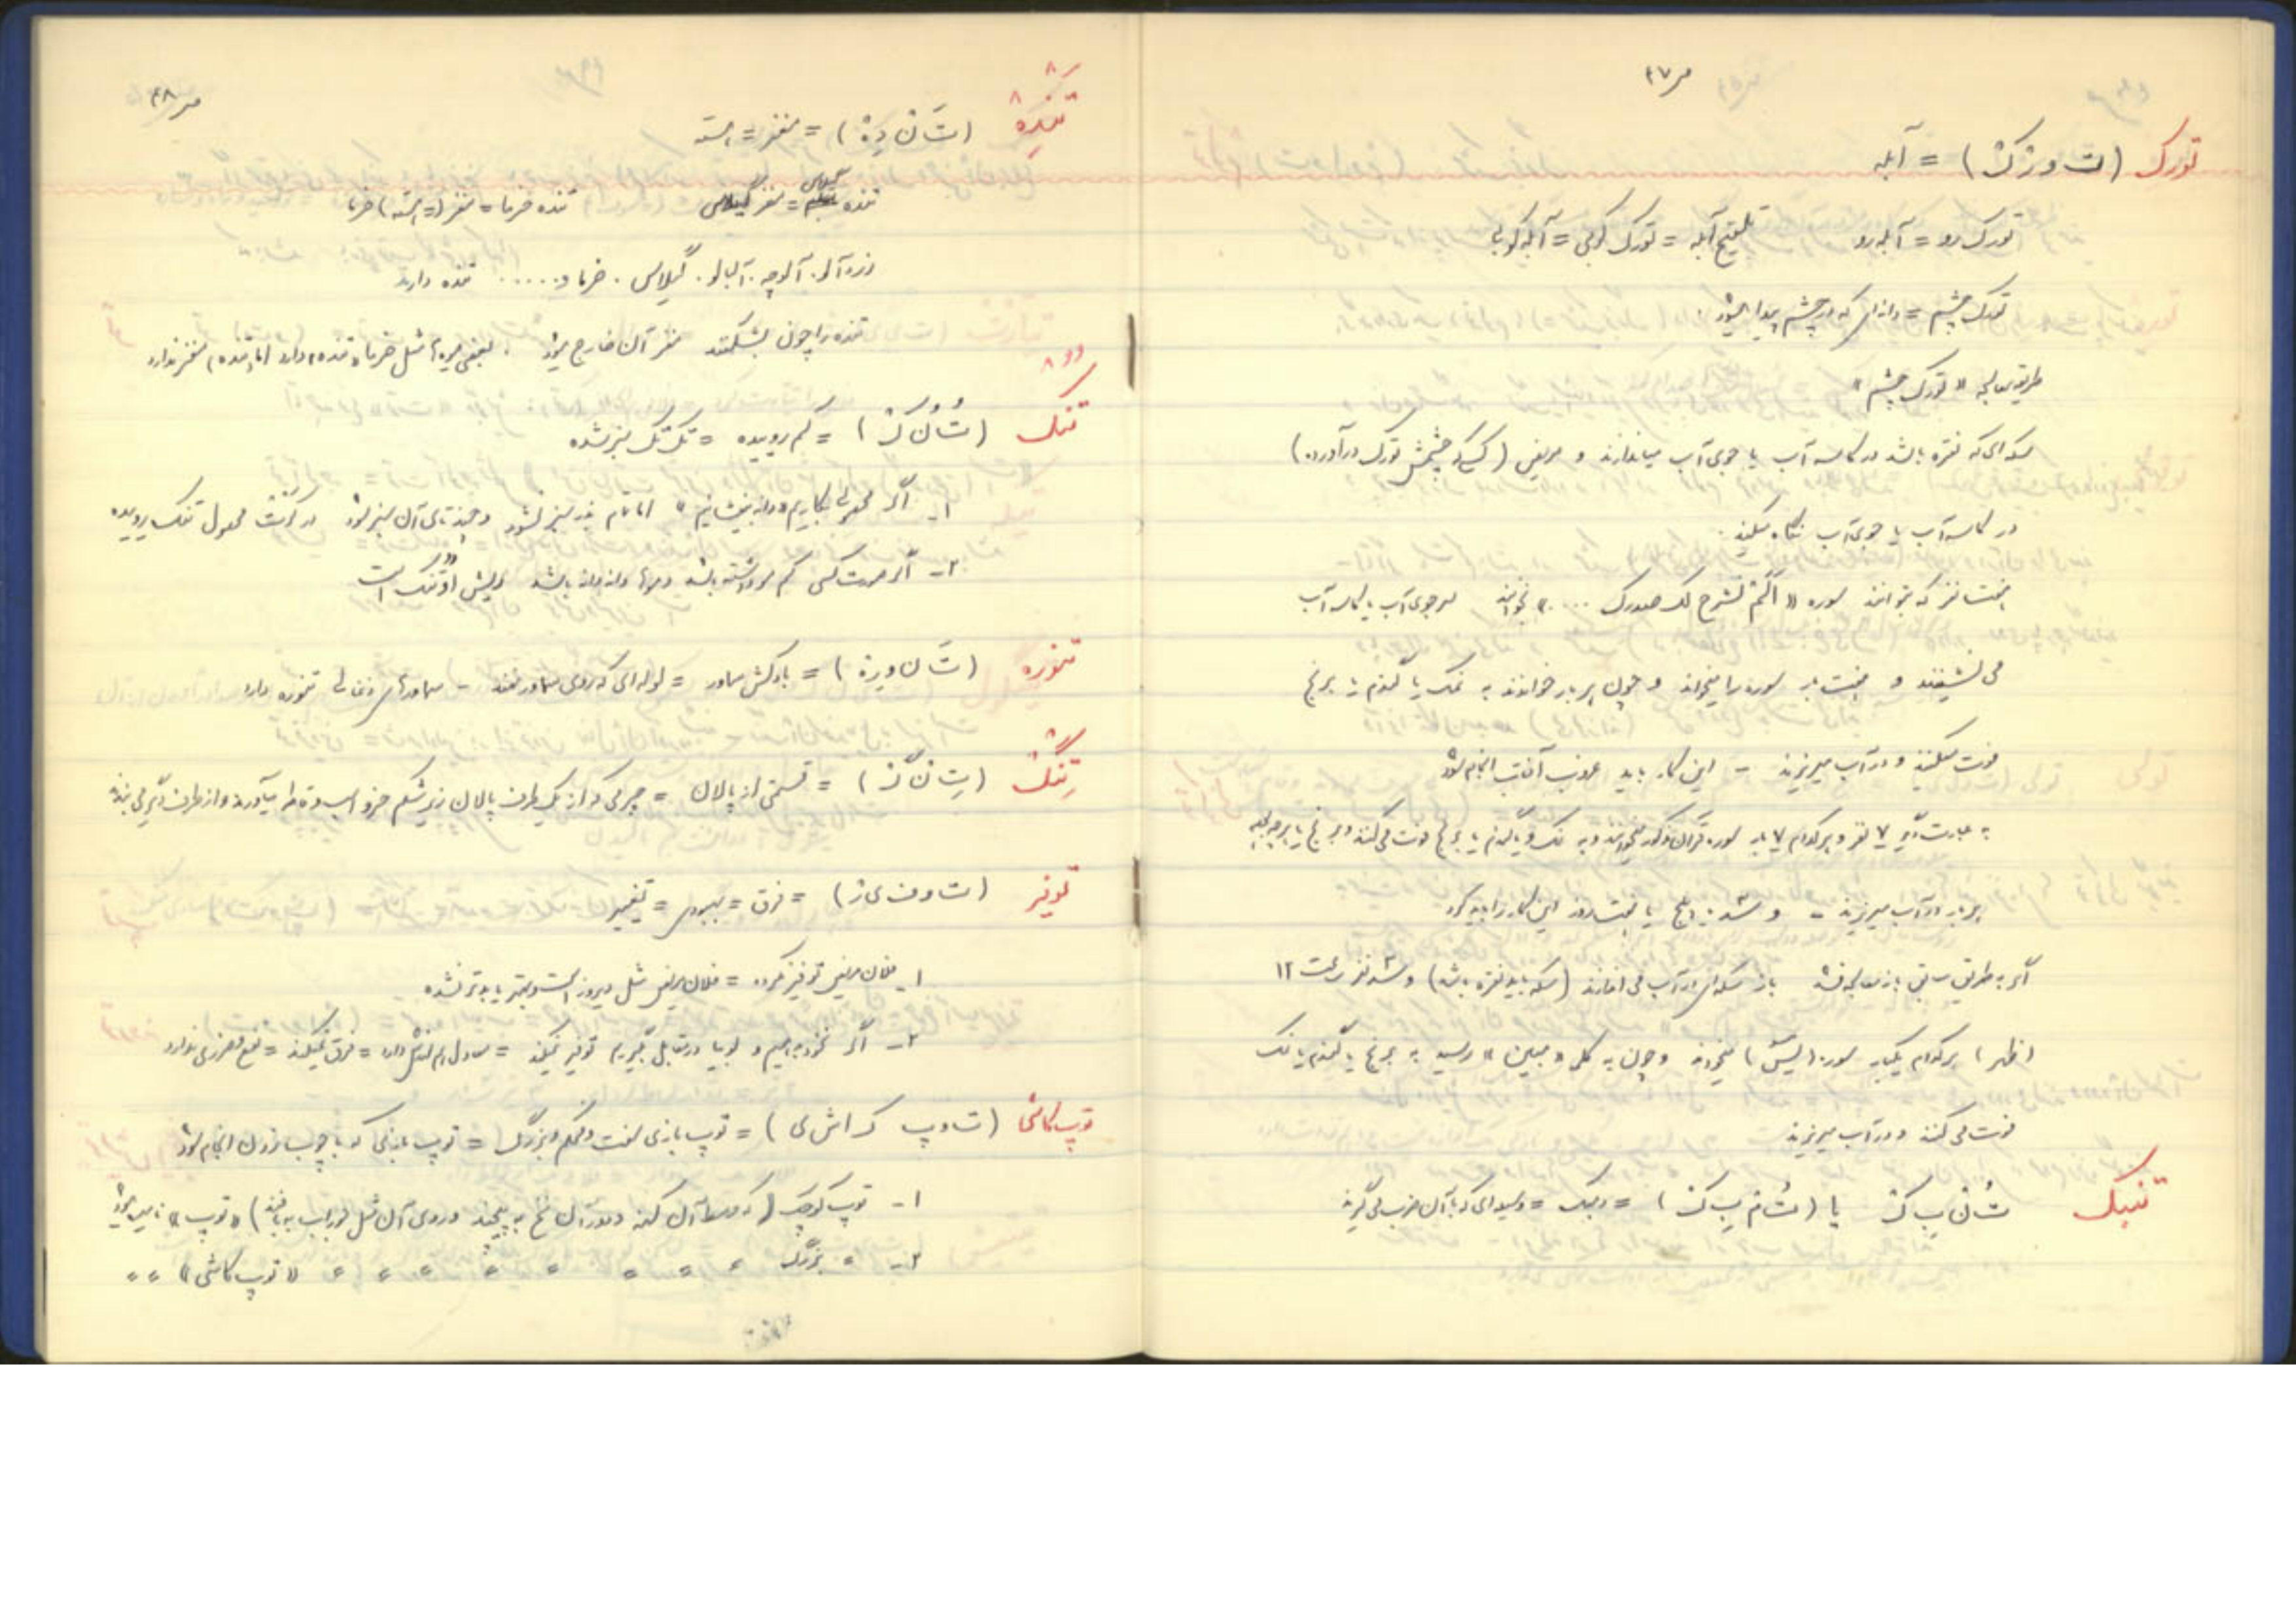 ص ۴۷
تورک (ت و رْ کْ) = آبله
تورک رو = آبله رو تلقیح آبله = تورک کوبی = آبله کوبی
تورک چشم = دانه‌ای که در چشم پیدا میشود.
طریق معالجه «تورک چشم»
سکه‌ای که نقره باشد در کاسه آب یا جوی آب میاندازند و مریض (کسی که چشمش تورک در آورده)
در کاسه آب یا جوی آب نگاه میکند.
هفت نفر که بتوانند سوره «اَلَمْ نَشرح لک صدرک ....» بخوانند سر جوی آب یا کاسه آب
می نشینند و هفت بار سوره را میخوانند و چون هر بار خواندند به نمک یا گندم یا برنج
فوت میکنند و در آب میریزند - این کار باید غروب آفتاب انجام شود
به عبارت دیگر ۷ نفر و هر کدام ۷ بار سوره قرآن مذکور میخوانند و به نمک و یا گندم یا برنج فوت می کنند و برنج یا
هر بار در آب میریزند - و سه، پنج یا هفت روز این کار را باید کرد
اگر به طریق سابق باز معالجه نشد باز سکه‌ای در آب می اندازند (سکه باید نقره باشد) و سه نفر ساعت ۱۲
(ظهر) هر کدام یکبار سوره (یس) میخوانند و چون به کلمه «مبین» رسید به برنج یا گندم یا نمک
فوت می کنند و در آب میریزند
تنبک تُ نْ بِ کْ یا (تُ مْ بِ کْ) = دمبک = وسیله‌ای که با آن ضرب می گیرند
ص ۴۸
تندِه (تَ نْ دِه) = مغز = هسته
تنده گیلاس = مغز گیلاس تنده خرما = مغز (= هسته) خرما
زردآلو. آلوچه. آلبالو. گیلاس. خرما و...... تنده دارند
تنده را چون بشکنند مغز آن خارج میشود. بعضی میوه‌ها مثل خرما «تنده» دارد اما «تنده» مغز ندارد
تنک (تُ نُ کْ) = کم روییده = تک تک سبز شده
۱- اگر محصولی بکاریم «دانه بیفشانیم» اما تمام بذر سبز نشود و چند تای آن سبز شود در اینصورت محصول تنک روییده
۲- اگر صورت کسی کم مو داشته باشد و موها دانه دانه باشد ریش او تنک است
تنوره (تَ ن و رِه) = بادکش سماور = لوله‌ای که روی سماور نهند - سماورهای ذغالی تنوره دارد
تِنگ (تِ نْ گْ) = قسمتی از پالان = چرمی که از یک طرف پالان زیر شکم خر و اسب و قاطر میآورند و از طرف دیگر می بندند
توفیر (ت و ف ی ر) = فرق = بهبودی = تغییر
۱- فلان مریض توفیر نکرده = فلان مریض مثل دیروز است و بهتر یا بدتر نشده
۲- اگر نخود بدهیم و لوبیا در مقابل بگیریم توفیر نمیکند = معادل هم ارزش دارد = فرق نمیکند = نفع و ضرری ندارد
توپ کاشی (ت و پ ک ا ش ی) = توپ بازی سفت و محکم و بزرگ = توپ بازی که با چوب زدن انجام شود
۱- توپ کوچک (که وسط آن کهنه و دور آن نخ به پیچند و روی آن مثل جوراب به بافند) «توپ» نامیده میشود
۲- " بزرگ " " " " " " " " " «توپ کاشی» " "